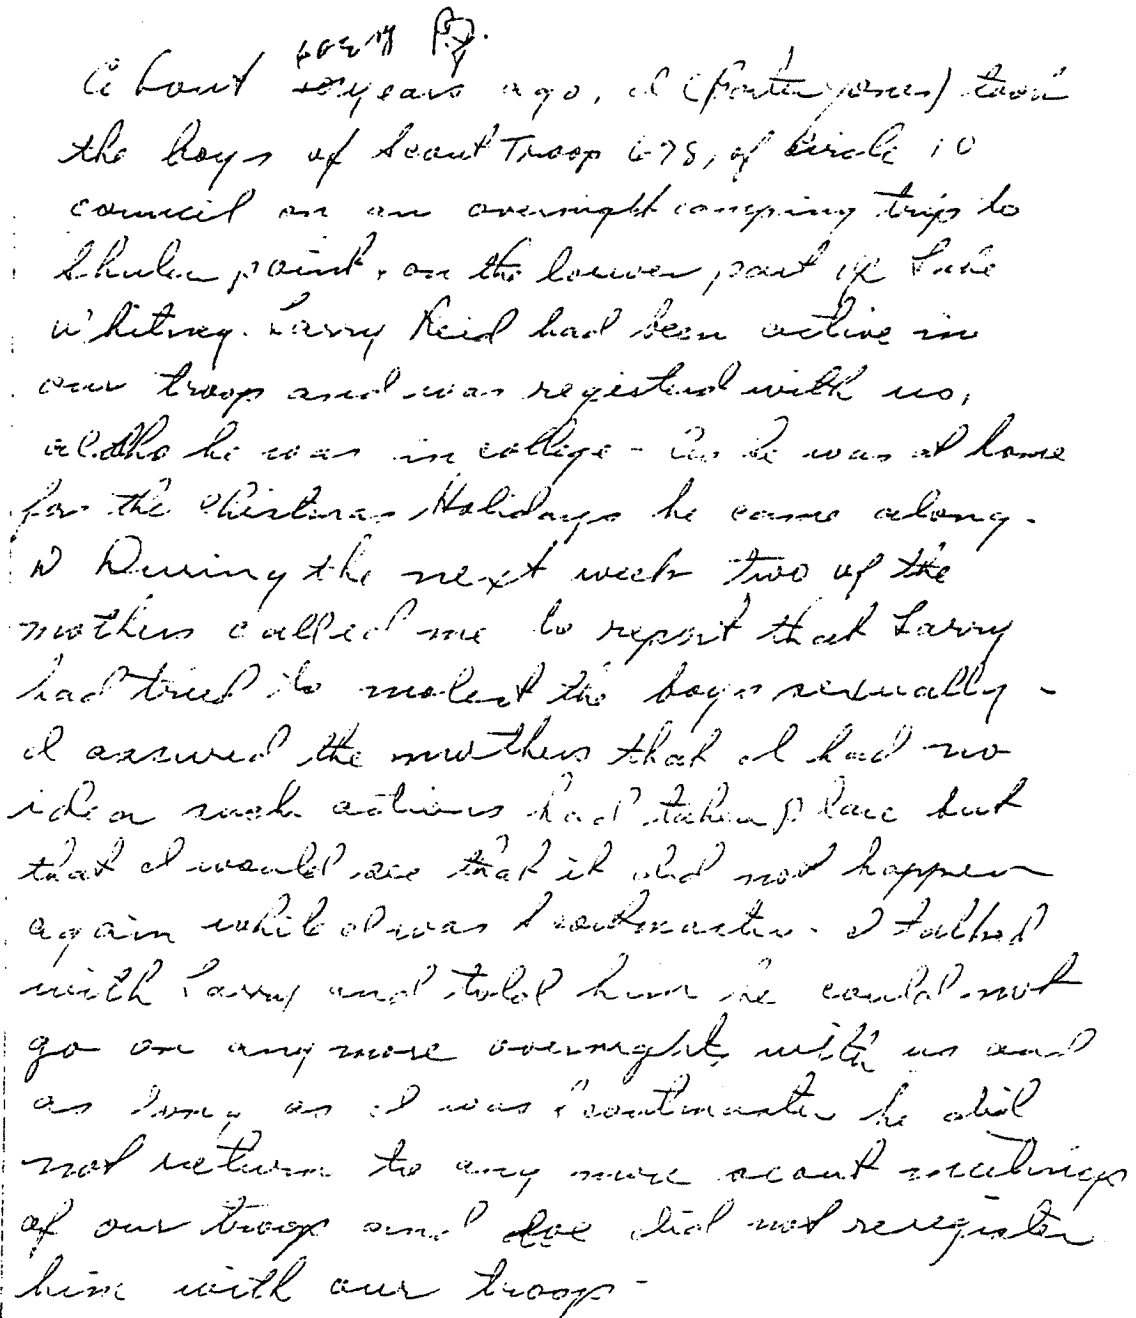 P.J.
About years ago, I (Porter Jones) took
the boys of Scout Troop 678, of Circle 10
council on an overnight camping trip to
point, on the lower part of Lake
Whitney. Larry Reid had been active in
our troop and was registerd with us,
altho he was in college - As he was at home
for the Christmas Holidays he came along.
During the next week two of the
mothers called me to report that Larry
had tried to molest the boys sexually -
I assured the mothers that I had no
idea such actions had taken place but
that I would see that it did not happen
again while I was Scoutmaster. I talked
with Larry and told him he could not
go on anymore overnights with us and
as long as I was Scoutmaster he did
not return to any more scout meetings
of our troop and did not reregister
him with our troop -